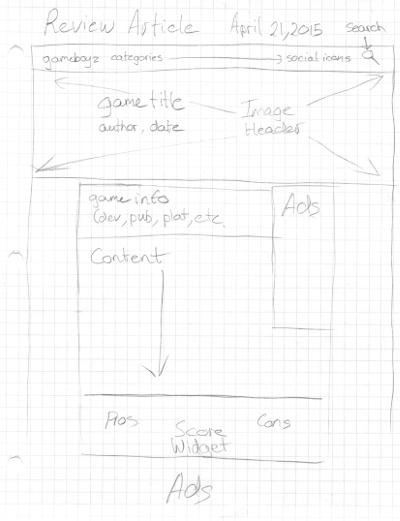 Review Article April 21, 2015 search
gameboyz categories social icons
game title
author, date
Image
Header
game info
(dev, pub, plat, etc.
Ads
Content
Pros
Score
Widget
Cons
Ads